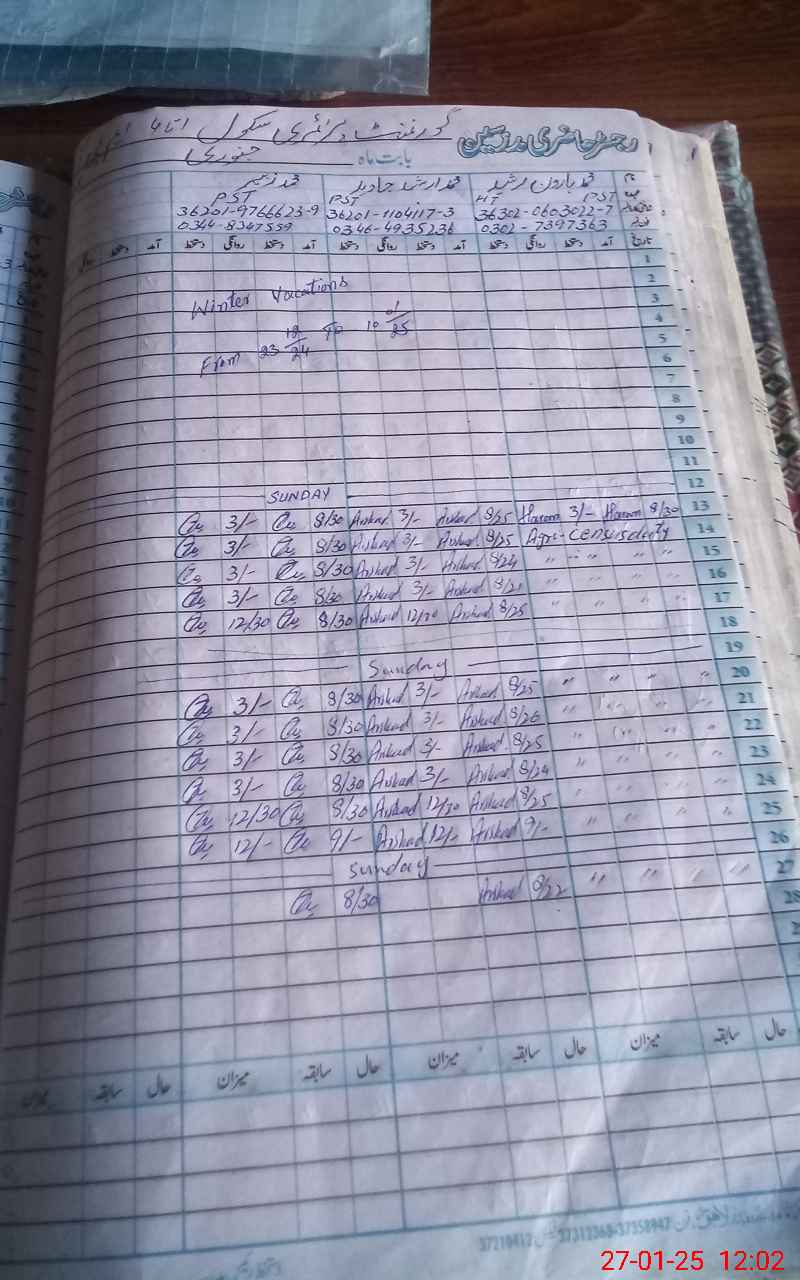 رجسٹر حاضری مدرسین گورنمنٹ پرائمری سکول
بابت ماہ جنوری
محمد ہارون رشید محمد ارشد جاوید محمد زبیر
HT PST PST PST
36302-0603022-7 36201-1104117-3 36201-9766623-9
0302-7397363 0346-4935236 0344-8347559
تاریخ آمد دستخط روانگی دستخط آمد دستخط روانگی دستخط آمد دستخط روانگی دستخط آمد دستخط
1
2
Winter Vacations 3
4
From 23 12/24 To 10 01/25 5
6
7
8
9
10
11
SUNDAY 12
3/- 8/30 Arshad 3/- Arshad 8/25 Haroon 3/- Haroon 8/30 13
3/- 8/30 Arshad 3/- Arshad 8/25 Agri-Census duty 14
3/- 8/30 Arshad 3/- Arshad 8/24 " " " " 15
3/- 8/30 Arshad 3/- Arshad 8/21 " " " " 16
12/30 8/30 Arshad 12/30 Arshad 8/25 " " " " 17
18
Sunday 19
3/- 8/30 Arshad 3/- Arshad 8/25 " " " " 20
3/- 8/30 Arshad 3/- Arshad 8/26 " " " " 21
3/- 8/30 Arshad 3/- Arshad 8/25 " " " " 22
3/- 8/30 Arshad 3/- Arshad 8/24 " " " " 23
12/30 8/30 Arshad 12/30 Arshad 8/25 " " " " 24
12/- 9/- Arshad 12/- Arshad 9/- " " " " 25
Sunday 26
8/30 Arshad 8/22 " " " " 27
28
حال سابقہ میزان حال سابقہ میزان حال سابقہ میزان حال سابقہ میزان
37210412 37312368-37358947
27-01-25 12:02